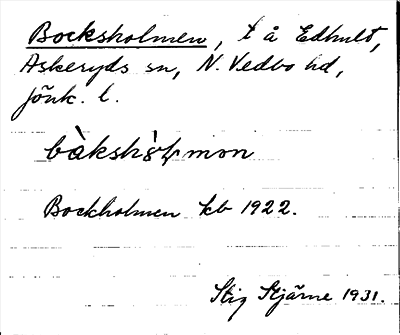 Bocksholmen, t å Edhult,
Askeryds sn, N. Vedbo hd,
Jönk. l.
Bockholmen kb 1922.
Stig Stjärne 1931.